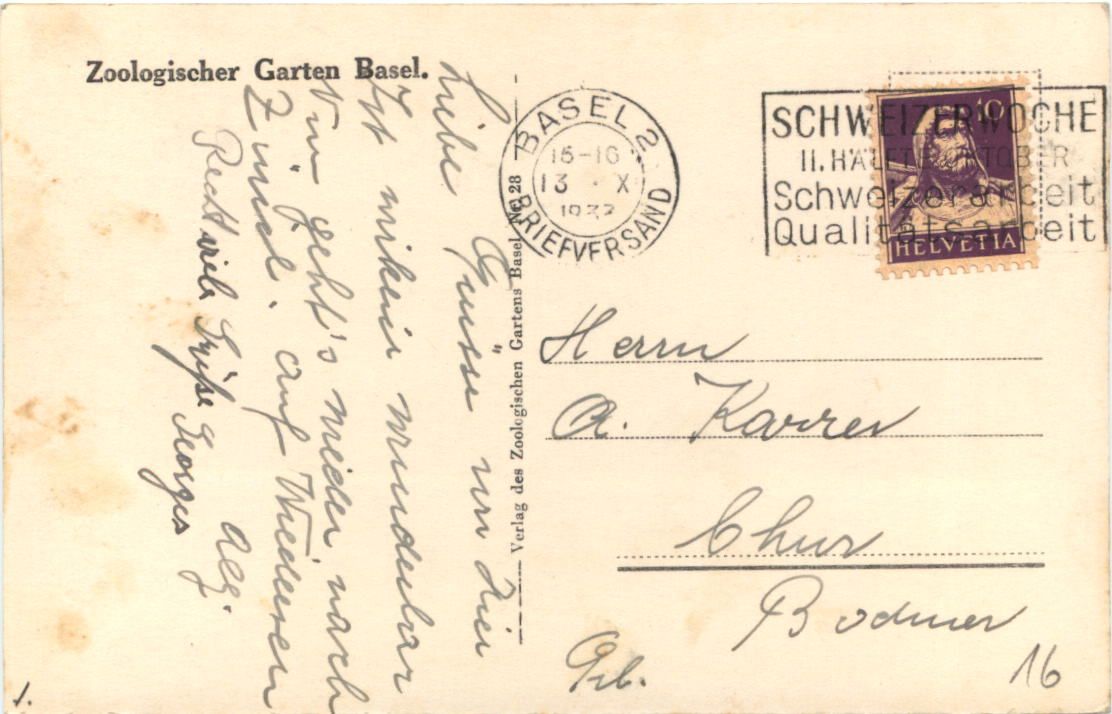 Zoologischer Garten Basel.
Liebe Grüsse von hier
Ist mirklin wunderbar
Nun geht's wieder nach
Zürich. auf Wiedersehen
Recht viele Grüße Georges
Verlag des Zoologischen Gartens Basel No. 28
BASEL 2
15-16
13 . X
BRIEFVERSAND
SCHWEIZERWOCHE
II. HÄLFTE OKTOBER
Schweizerarbeit
Qualitätsarbeit
10
HELVETIA
Herrn
A. Karrer
Chur
Bodmer
16
1.